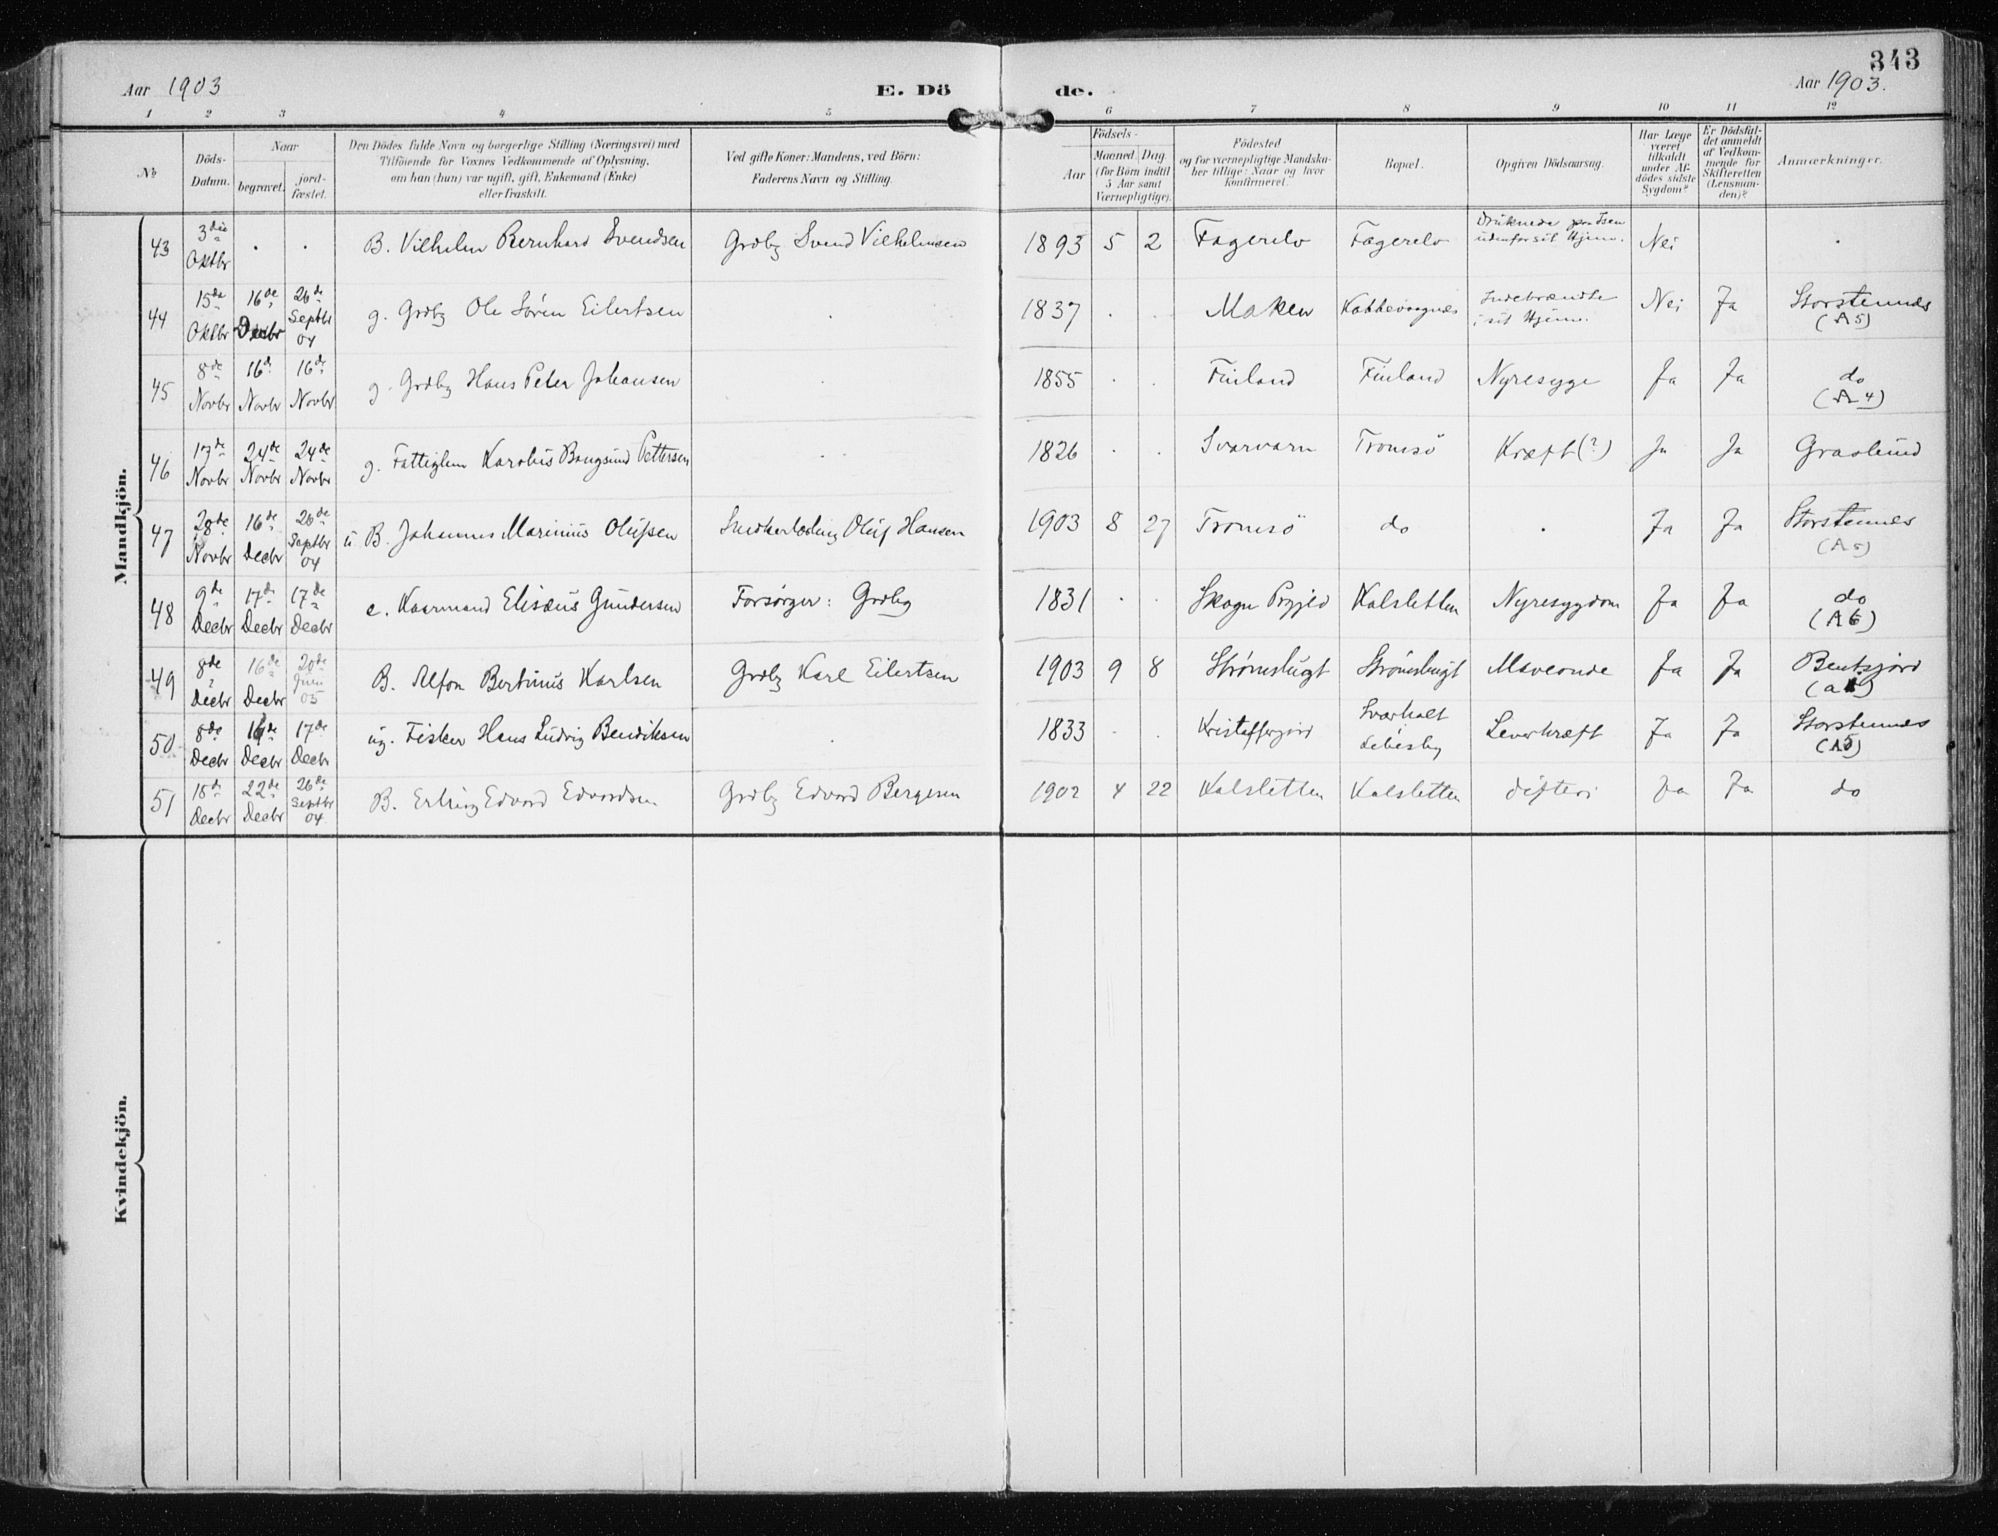 343
Aar 1903 E. Dö de. Aar 1903.
1 2 3 4 5 6 7 8 9 10 11 12
№
Döds-Datum.
Naar
begravet.
jord-fæstet.
Den Dödes fulde Navn og borgerlige Stilling (Næringsvei) med
Tilföiende for Voxnes Vedkommende af Oplysning,
om han (hun) var ugift, gift, Enkemand (Enke)
eller fraskilt.
Ved gifte Koner: Mandens, ved Börn:
Faderens Navn og Stilling.
Födsels-
Aar
Maaned. Dag.
(for Börn indtil
5 Aar samt
Værnepligtige).
Födested
og for værnepligtige Mandska-
ber tillige: Naar og hvor
konfirmeret.
Bopæl.
Opgiven Dödsaarsag.
Har Læge
været
tilkaldt
under Af-
dödes sidste
Sygdom?
Er Dödsfal-
det anmeldt
af Vedkom-
mende for
Skifteretten
(Lensman-
den)?
Anmærkninger.
Mandkjön.
43 3die Oktbr . . B. Vilhelm Bernhard Svendsen Grdbg Svend Vilhelmsen 1893 5 2 Fagerelv Fagerelv Druknede paa Isen udenfor sit Hjem. Nei .
44 15de Oktbr 16de Decbr 26de Septbr 04 g. Grdbg Ole Sören Eilertsen . 1837 . . Maken Kobbevaagnes Indebrændte i sit Hjem. Nei Ja Storstennes (A5)
45 8de Novbr 16de Novbr 16de Novbr g. Grdbg Hans Peter Johansen . 1855 . . Finland Finland Nyresyge Ja Ja do (A4)
46 17de Novbr 24de Novbr 24de Novbr g. Fattiglem Karolus Bangsund Pettersen . 1826 . . Svarvarn Tromsö Kræft (?) Ja Ja Graslund
47 28de Novbr 16de Decbr 26de Septbr 04 u B. Johannes Marinius Olufsen Snedkerlærling Oluf Hansen 1903 8 27 Tromsö do . Ja Ja Storstennes (A5)
48 9de Decbr 17de Decbr 17de Decbr e. Kaarmand Elisæus Gundersen Forsörger: Grdbg 1831 . . Skogn Prgjld Kalsletten Nyresygdom Ja Ja do (A6)
49 8de Decbr 16de Decbr 20de Juni 05 B. Alfon Bertinius Karlsen Grdbg Karl Eilertsen 1903 9 8 Strømsbugt Strømsbugt Maveonde Ja Ja Bentsjord
50 8de Decbr 16de Decbr 17de Decbr ug. Fisker Hans Ludvig Bendiksen . 1833 . . Kristoffergjord Sværholt Lebesby Leverkræft Ja Ja Storstennes (A5)
51 18de Decbr 22de Decbr 26de Septbr 04 B. Erling Edvard Edvardsen Grdbg Edvard Bergesen 1902 4 22 Kalsletten Kalsletten difteri Ja Ja do
Kvindekjön.